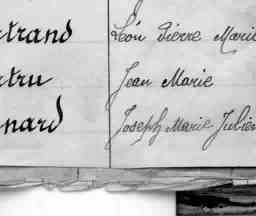 rtrand Léon Pierre Marie
rtru Jean Marie
nard Joseph Marie Julien